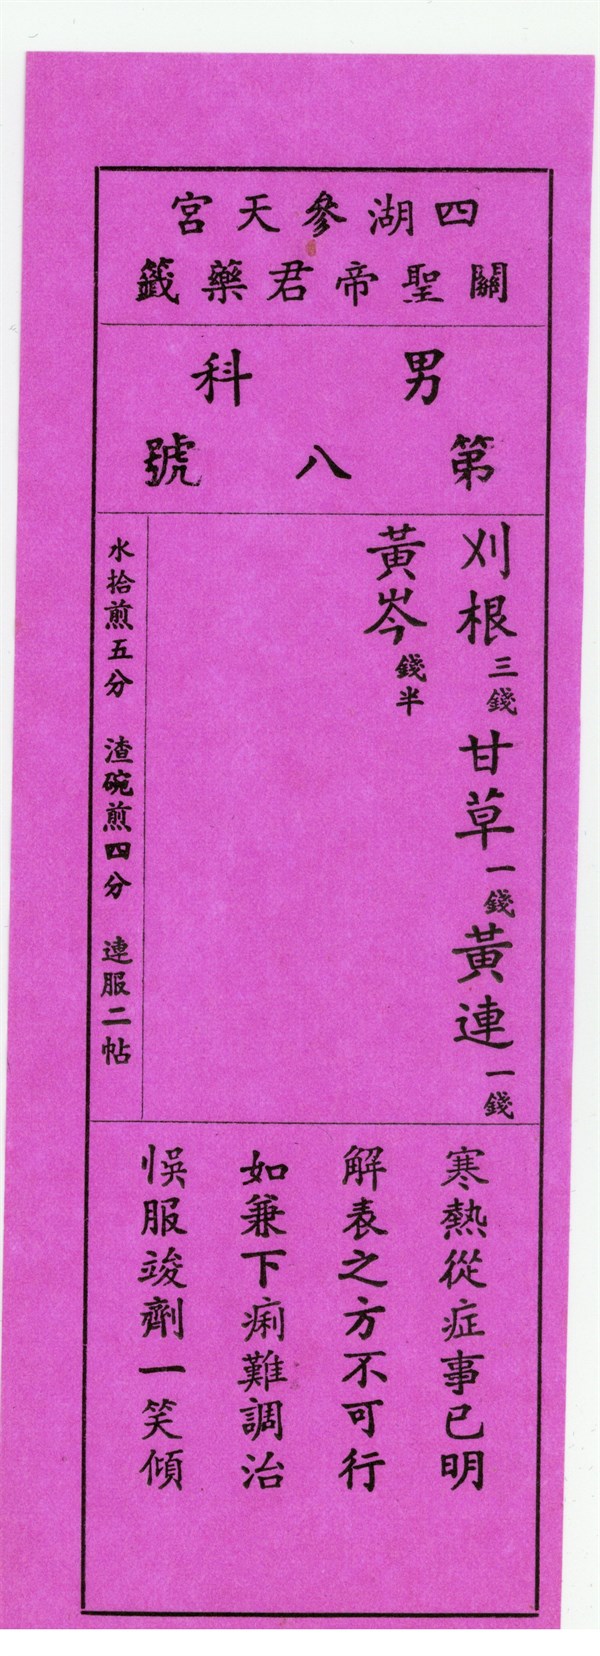 四湖參天宮
關聖帝君藥籤
男科
第八號
刈根三錢甘草一錢黃連一錢
黃岑錢半
水拾煎五分 渣碗煎四分 連服二帖
寒熱從症事已明
解表之方不可行
如兼下痢難調治
悞服竣劑一笑傾